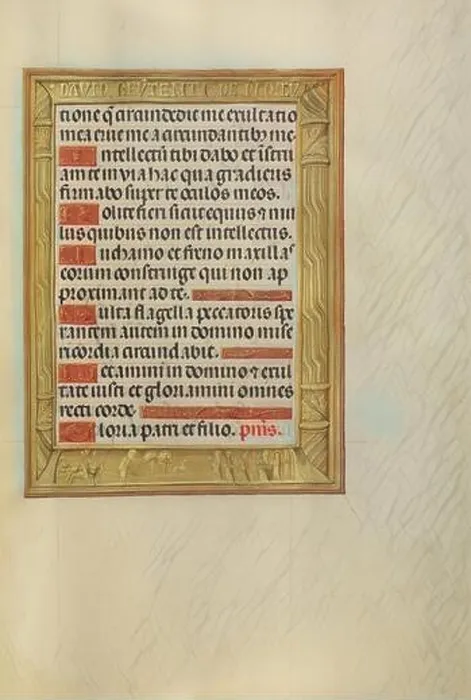 tione q̄ circundedit me exultatio
mea erue me a circundantibꝫ me.
Intellectū tibi dabo et īstru
am te in via hac qua gradieris
firmabo super te oculos meos.
Nolite fieri sicut equus ⁊ mu
lus quibus non est intellectus.
In chamo et freno maxillas
eorum constringe qui non ap
proximant ad te.
Multa flagella peccatoris spe
rantem autem in domino mise
ricordia circundabit.
Letamini in domino ⁊ exul
tate iusti et gloriamini omnes
recti corde.
Gloria patri et filio. pm̄s.